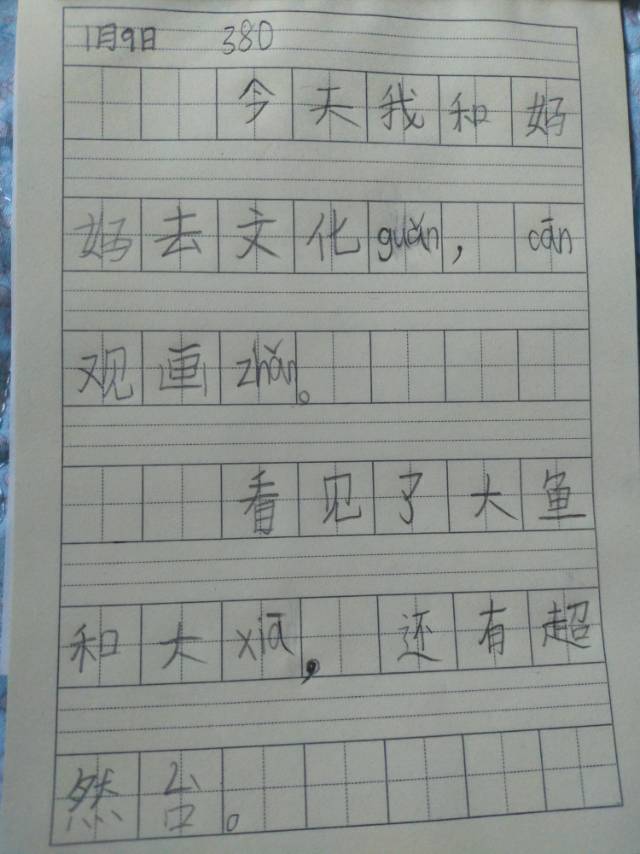 1月9日 380
今天我和妈
妈去文化guǎn，cān
观画zhǎn。
看见了大鱼
和大xiā，还有超
然台。